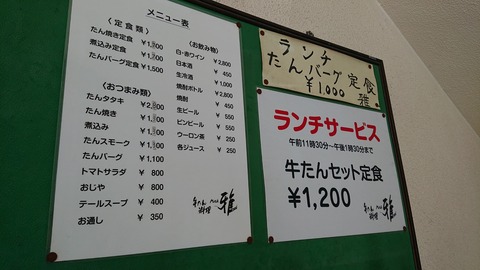 メニュー表
〈定食類〉
たん焼き定食
煮込み定食
たんバーグ定食 ¥1,500
〈おつまみ類〉
たんタタキ
たん焼き
煮込み
たんスモーク
たんバーグ ¥1,100
トマトサラダ ¥ 800
おじや ¥ 800
テールスープ ¥ 400
お通し ¥ 350
〈お飲み物〉
白・赤ワイン ¥2,800
日本酒 ¥ 450
生冷酒 ¥1,000
焼酎ボトル ¥2,800
焼酎 ¥ 450
生ビール ¥ 550
ビンビール ¥ 550
ウーロン茶 ¥ 250
各ジュース ¥ 250
牛たん料理 雅
ランチ
たんバーグ定食
¥1,000 雅
ランチサービス
午前11時30分～午後1時30分まで
牛たんセット定食
¥1,200
牛たん料理 雅